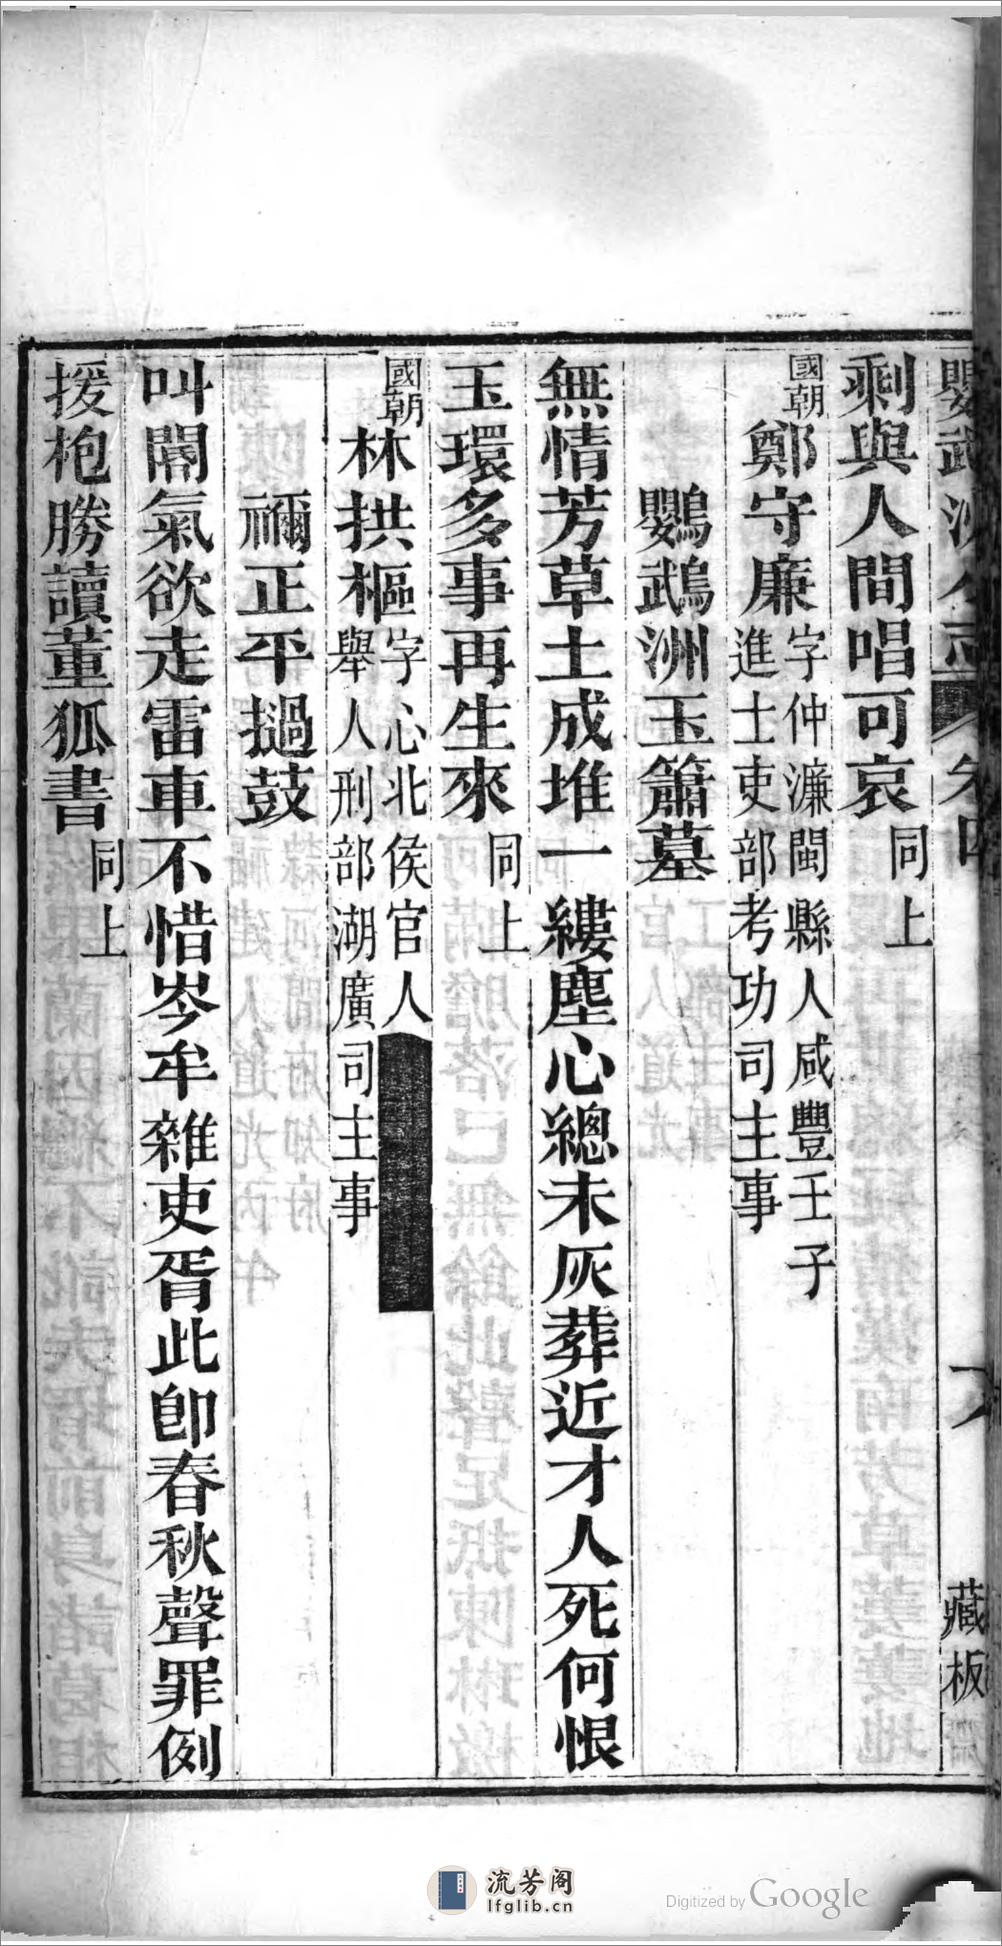 剩與人間唱可哀同上
國朝鄭守廉字仲濂閩縣人咸豐壬子
進士吏部考功司主事
鸚鵡洲玉簫墓
無情芳草土成堆一縷塵心總未灰葬近才人死何恨
玉環多事再生來同上
國朝林拱樞字心北侯官人
舉人刑部湖廣司主事
禰正平撾鼓
叫閽氣欲走雷車不惜岑牟雜吏胥此卽春秋聲罪例
援枹勝讀董狐書同上
藏板
流芳阁
lfglib.cn
Digitized by Google